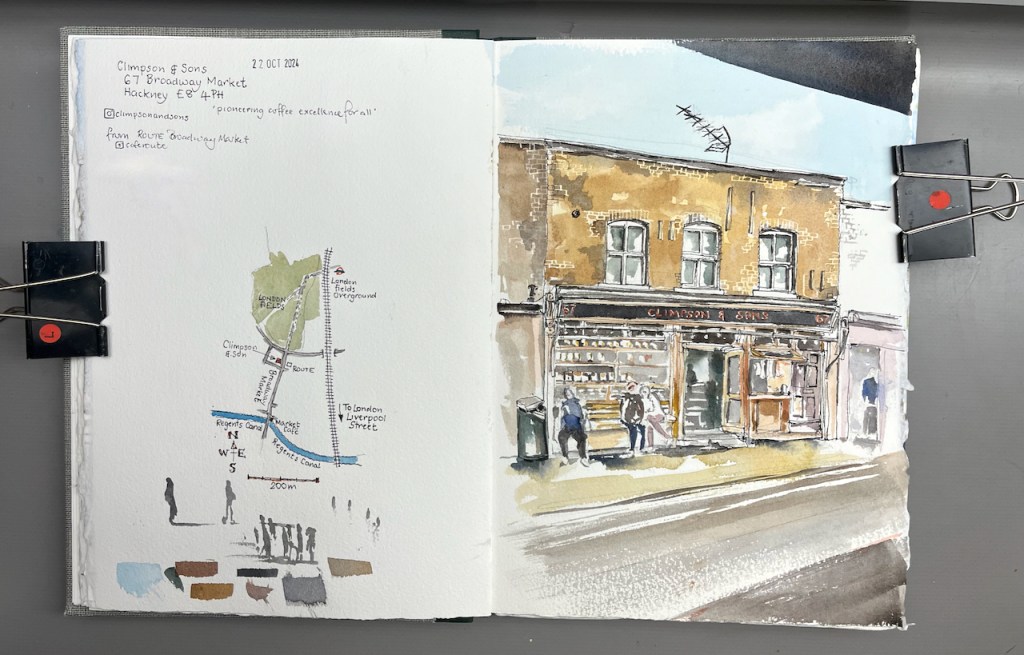 Climpson & Sons
67 Broadway Market
Hackney E8 4PH
22 OCT 2024
"pioneering coffee excellence for all"
climpsonandsons
from ROUTE Broadway Market
caferoute
LONDON
FIELDS
London
Fields
Overground
Climpson
& Son
ROUTE
Broadway
Market
To London
Liverpool
Street
Regents Canal
Market
Café
Regents Canal
N
W E
S
200m
67 CLIMPSON & SONS 67